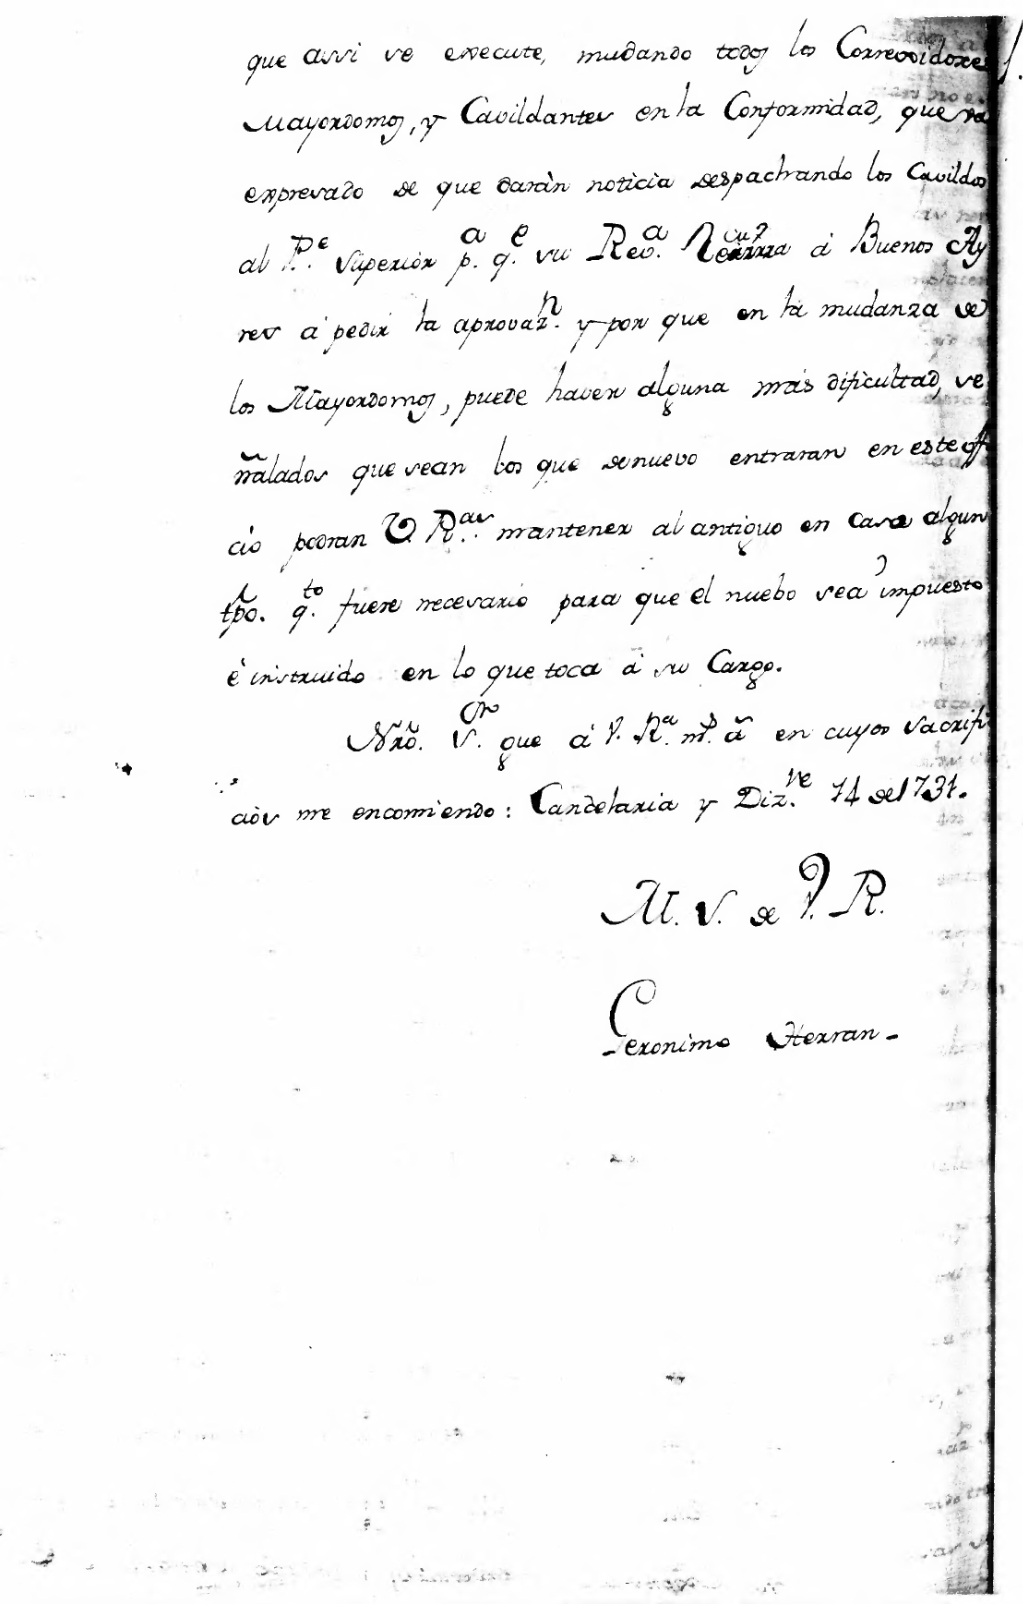 que assi se execute, mudando todos los Correxidores
Mayordomos, y Cavildantes en la Conformidad, que va
expresado de que daràn noticia despachando los Cavildos
al P.e Superiòr p.a q.e su Rev.a á Buenos Ay
res á pedir la aprovaz.n y por que en la mudanza de
los Mayordomos, puede haver alguna más dificultad, se
ñalados que sean los que de nuevo entraran en este offi
cio podran V. R.as mantener al antiguo en casa algun
tpo. q.to fuere necesario para que el nuebo sea impuesto
é instruido en lo que toca á su Cargo.
Nro. S.or gue á V. R.a m.s a.s en cuyos Sacrifi
cios me encomiendo: Candelaria y Diz.re 14 de 1731.
M. S. de V. R.
Geronimo Herran-